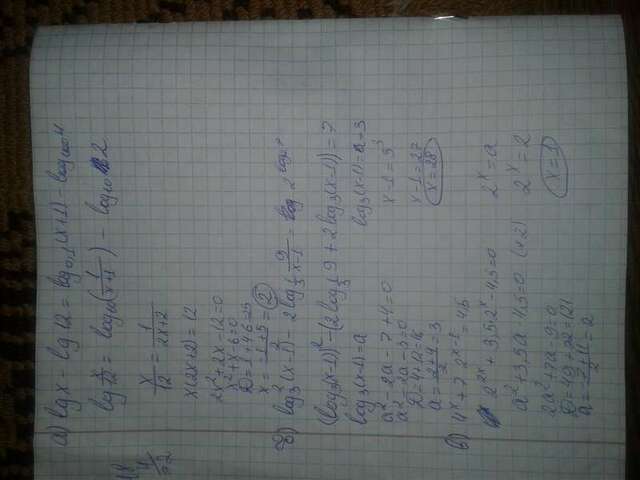 а) lg x - lg 12 = log₀,₁(x+1) - log₁₀₀ 4
lg x/12 = log₁₀(1/(x+1)) - log₁₀ 2
x/12 = 1/(2x+2)
x(2x+2) = 12
2x²+2x-12=0
x²+x-6=0
D=1+4·6=25
x = (-1+5)/2 = 2
log₃²(x-1) - 2log_{1/3} 9/(x-1) = 2
(log₃(x-1))² - (2log_{1/3} 9 + 2log₃(x-1)) = 7
log₃(x-1) = a log₃(x-1) = a = 3
a² - 2a - 7 + 4 = 0 x-1 = 3³
a² - 2a - 3 = 0
D = 4+12=16 x-1 = 27
a = (2+4)/2 = 3 x = 28
в) 4ˣ + 7·2ˣ⁻¹ = 4,5
2²ˣ + 3,5·2ˣ - 4,5 = 0 2ˣ = a
a² + 3,5a - 4,5 = 0 (×2) 2ˣ = 2
2a² + 7a - 9 = 0 x = 1
D = 49 + 72 = 121
a = (-7+11)/2 = 2